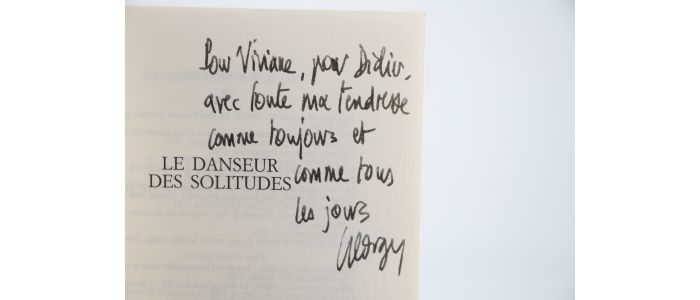 Pour Viviane, pour Didier,
avec toute ma tendresse
comme toujours et
LE DANSEUR
DES SOLITUDES
comme tous
les jours